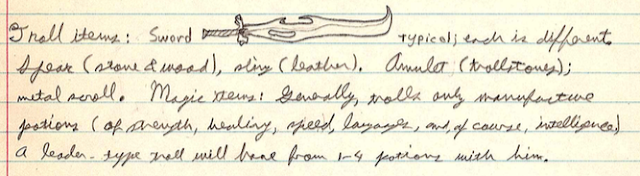 Troll items: Sword typical; each is different.
Spear (stone & wood), sling (leather). Amulet (trollstones);
metal scroll. Magic items: Generally, trolls only manufacture
potions (of strength, healing, speed, languages, and, of course, intelligence)
A leader-type troll will have from 1-4 potions with him.